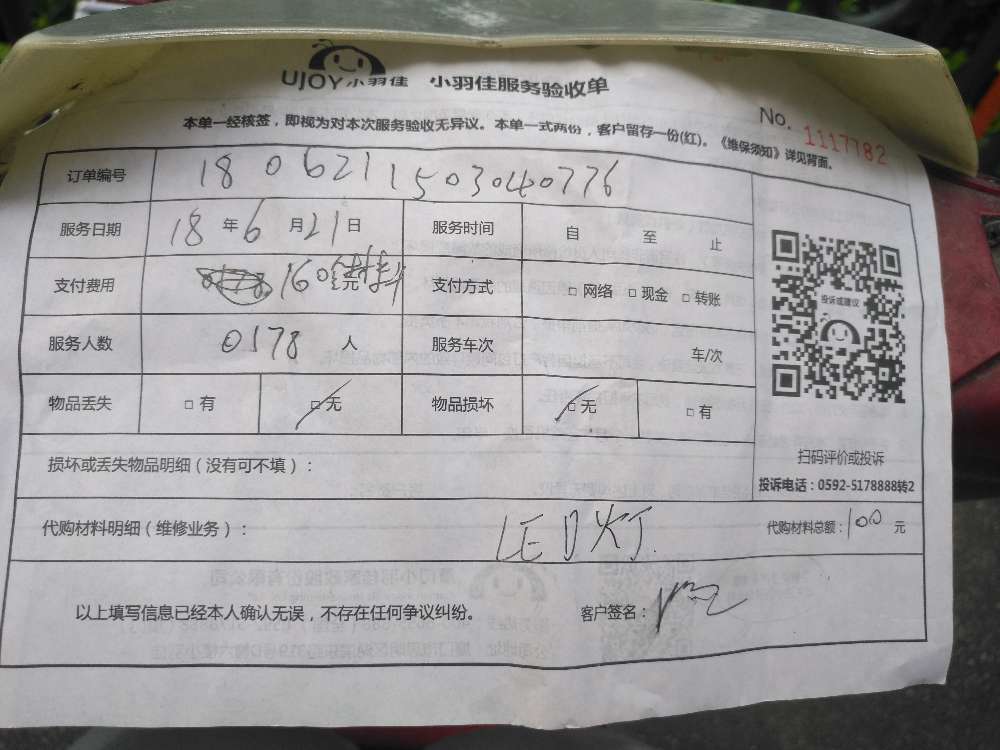 UJOY小羽佳 小羽佳服务验收单
本单一经核签，即视为对本次服务验收无异议。本单一式两份，客户留存一份(红)。《维保须知》详见背面。
No. 1117782
订单编号 1806211503040776
服务日期 18年6月21日 服务时间 自 至 止
支付费用 160 支付方式 □ 网络 □ 现金 □ 转账
服务人数 0578 人 服务车次 车/次
物品丢失 □ 有 □ 无 物品损坏 □ 无 □ 有
投诉或建议
扫码评价或投诉
投诉电话：0592-5178888转2
损坏或丢失物品明细（没有可不填）：
代购材料明细（维修业务）： LED灯 代购材料总额：100 元
以上填写信息已经本人确认无误，不存在任何争议纠纷。 客户签名：